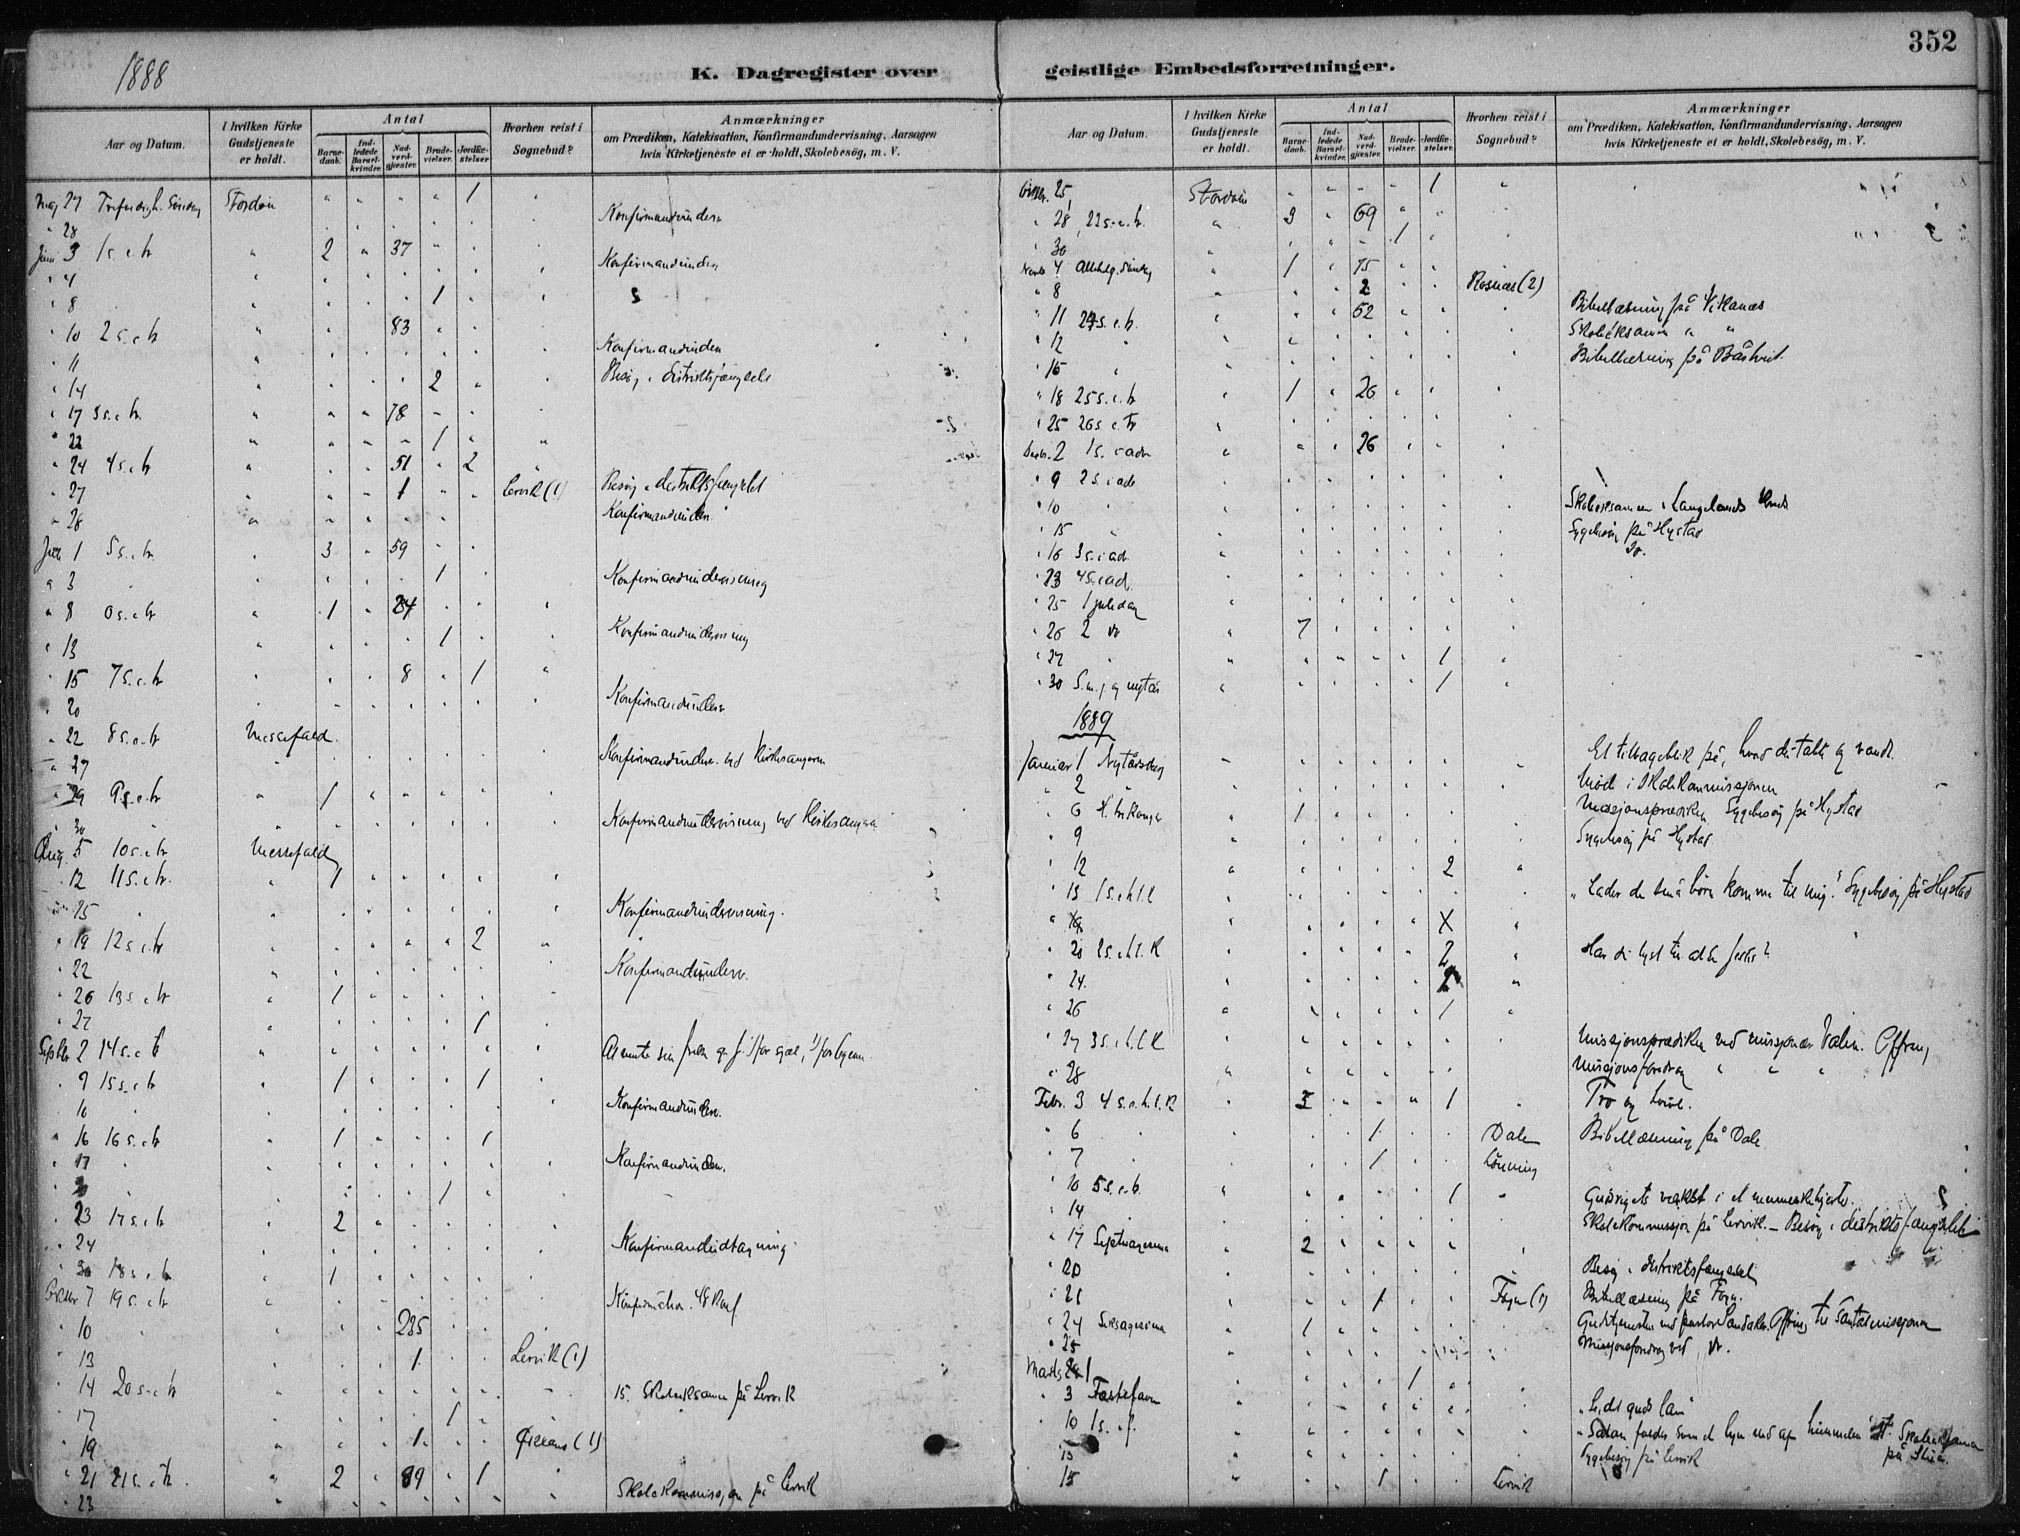 352
1888
K. Dagregister over geistlige Embedsforretninger.
Aar og Datum.
I hvilken Kirke Gudstjeneste er holdt.
Antal
Barne-daab.
Ind-ledede Barsel-kvinder.
Nad-verd-gjæster.
Brude-vielser.
Jordfæ-stelser.
Hvorhen reist i Sognebud?
Anmærkninger
om Prædiken, Katekisation, Konfirmandundervisning, Aarsagen
hvis Kirketjeneste ei er holdt, Skolebesög, m. V.
Maj 27 Stordøen " " " " 1 "
" 28 Konfirmandunderv
Juni 3 1 s. e. tr " 2 " 37 "
" 4 Konfirmandunderv
" 8 1
" 10 2 s. e. tr " 83
" 11 Konfirmandunden
" 14 2 Besøg i distriktsfængslet
" 17 3 s. e. tr. 78
" 22 1
" 24 4 s. e. tr 51 " 2
" 27 1 Lervik (1) Besøg i distriktsfængslet
" 28 Konfirmandunden
Juli 1 5 s. e. tr. 3 " 59
" 3 1 Konfirmandundervisning
" 8 s. e. tr 1 " 24
" 13 1 Konfirmandundervisning
" 15 7 s. e. tr 8 " 1
" 20 Konfirmandunderv
" 22 8 s. e. tr Messefald.
" 27 Konfirmandunderv. ved Kirkesangeren
" 29 9 s. e. tr " 1
" 30 Konfirmandundervisning ved Kirkesangeren
Aug. 5 10 s. e. tr Messefald
" 12 11 s. e. tr. 1
" 15 Konfirmandundervisning.
" 19 12 s. e. tr 2
" 22 Konfirmandunderv.
" 26 13 s. e. tr 1
" 27 1
Septbr 2 14 s. e. t
" 9 15 s. e. tr 1 1
" 10 Konfirmandunderv.
" 16 16 s. e. tr 1 1
" 17 Konfirmandunden.
" 20 1
" 23 17 s. e. tr 2
" 24 Konfirmandudtagning
" 30 18 s. e. tr 1
Oktbr 7 19 s. e. tr Konfirmation. 48 Konf
" 10 235
" 13 1 Lervik (1)
" 14 20 s. e. tr 15. Skoleeksamen på Lervik
" 17 1
" 19 1 (1)
" 21 21 s. e. tr. 2 " 89 " 1
" 23 Skolekommissjon på Lervik
Aar og Datum.
I hvilken Kirke Gudstjeneste er holdt.
Antal
Barne-daab.
Ind-ledede Barsel-kvinder.
Nad-verd-gjæster.
Brude-vielser.
Jordfæ-stelser.
Hvorhen reist i Sognebud?
Anmærkninger
om Prædiken, Katekisation, Konfirmandundervisning, Aarsagen
hvis Kirketjeneste ei er holdt, Skolebesög, m. V.
Oktbr. 25, Stordøen 1
" 28, 22 s. e. tr. 3 " 69
" 30 1
Novb 4 Allehelg. Søndag 1 " 75
" 8 2 Rosnæs (2)
" 11 24 s. e. tr. 52 Bibellæsning på Vikanæs
" 12 Skoleksamen " "
" 15 Bibellæsning på Båstveit.
" 18 25 s. e. tr 1 " 26
" 25 26 s. e. tr
Decbr. 2 1 s. i adv 26
" 9 2 s. i adv
" 10 Skoleeksamen i Langelands kreds
" 15 Sygebesøg på Hystad
" 16 3 s. i adv. Do.
" 23 4 s. i ad.
" 25 1 juledag
" 26 2 do 7
" 27 1
" 30 S. m. j. og nytår 1
1889
Januar 1 Nytårsdag Et tilbageblik på, hvad de talte og vandt.
" 2 Møde i Skolekommissjonen
" 6 H. tre Konger 1 Missjonsprædiken Sygebesøg på Hystad
" 9 Sygebesøg på Hystad
" 12 2
" 13 1 s. e. h. t. k "Lader de små børn komme til mig". Sygebesøg på Hystad
" 19 X
" 20 2 s. e. h. t. K 2 Har du lyst til at
" 24.
" 26 1
" 27 3 s. e. h. t. K Missjonsprædiken ved missjonær Valen. Offring
" 28 Missjonsforedrag " " "
Febr. 3 4 s. e. h. t. K 3 1 Tro og tvivl.
" 6 1 Dale Bibellæsning på Dale
" 7 1 Lønning
" 10 5 s. e. h. 1 Gudsrigets vækst i et menneskehjerte.
" 14 Skolekommissjon på Lervik. – Besøg i distriktsfængslet
" 17 Septuagesima 2
" 20 Besøg i distriktsfængslet
" 21 1 Føyn (1) Bibellæsning på Føyn.
" 24 Seksagesima 1 Gudstjeneste ved pastor Sandaker. Offring til Santalmissjonen
" 25 Missjonsforedrag ved do.
Marts 1 1
" 3 Fastelavn "Se, det guds lam"
" 10 1 s. i f. "Satan falde som et lyn ned af himmelen" Skoleeksamen
" 13 Sygebesøg på Lervik på
" 15 1 Lervik